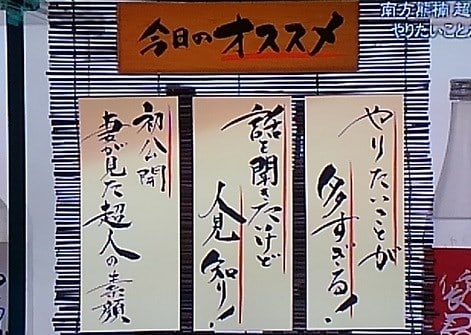 今日のオススメ
南方熊楠 超
やりたいことが
やりたいことが
多すぎる!
話を聞きたけど
人見知り!
初公開
妻が見た超人の素顔